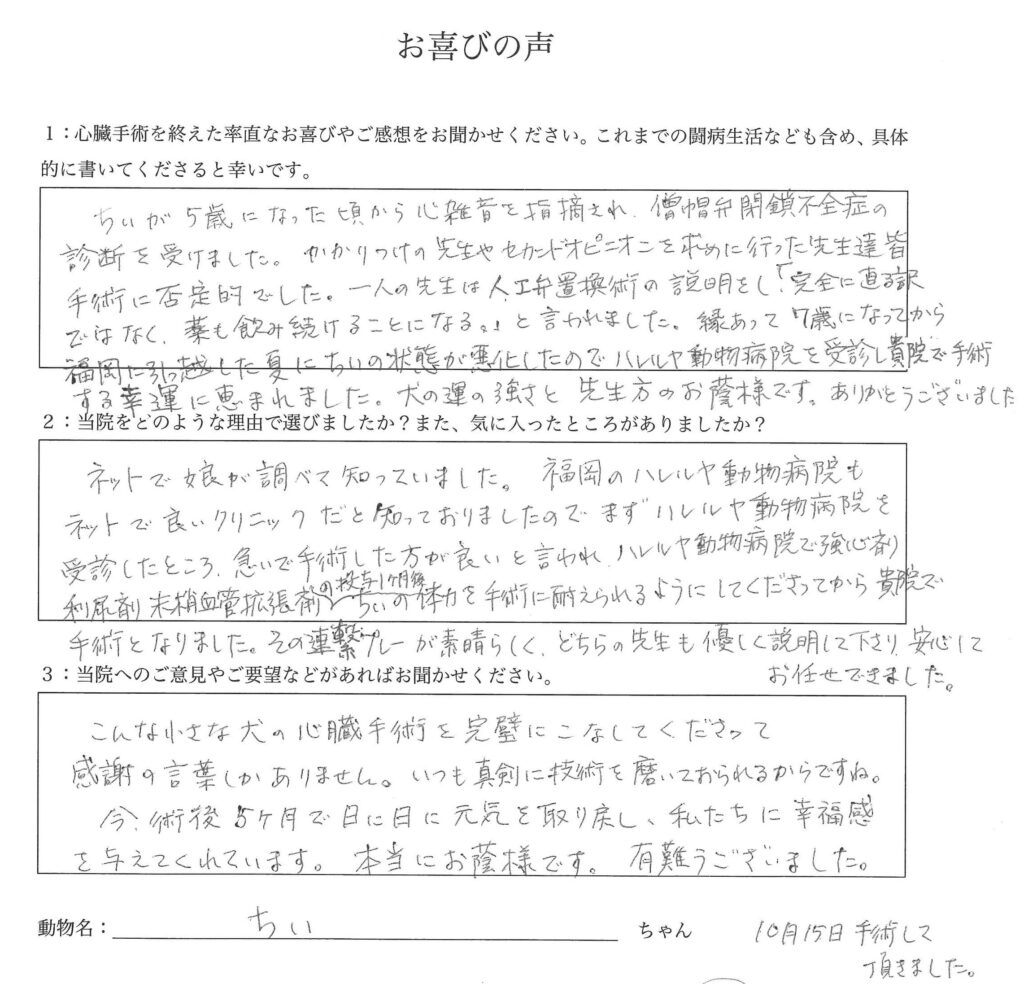 お喜びの声
1：心臓手術を終えた率直なお喜びやご感想をお聞かせください。これまでの闘病生活なども含め、具体
的に書いてくださると幸いです。
ちぃが5歳になった頃から心雑音を指摘され、僧帽弁閉鎖不全症の
診断を受けました。かかりつけの先生やセカンドオピニオンを求めに行った先生達皆
手術に否定的でした。一人の先生は人工弁置換術の説明をし「完全に直る訳
ではなく、薬も飲み続けることになる。」と言われました。縁あって7歳になってから
福岡に引っ越した夏にちぃの状態が悪化したのでハレルヤ動物病院を受診し貴院で手術
する幸運に恵まれました。犬の運の強さと先生方のお蔭様です。ありがとうございました
2：当院をどのような理由で選びましたか？また、気に入ったところがありましたか？
ネットで娘が調べて知っていました。福岡のハレルヤ動物病院も
ネットで良いクリニックだと知っておりましたのでまずハレルヤ動物病院を
受診したところ、急いで手術した方が良いと言われ、ハレルヤ動物病院で強心剤
利尿剤 末梢血管拡張剤の投与1ヶ月後ちぃの体力を手術に耐えられるようにしてくださってから貴院で
手術となりました。その連繋プレーが素晴らしく、どちらの先生も優しく説明して下さり、安心して
お任せできました。
3：当院へのご意見やご要望などがあればお聞かせください。
こんな小さな犬の心臓手術を完璧にこなしてくださって
感謝の言葉しかありません。いつも真剣に技術を磨いておられるからですね。
今、術後5ケ月で日に日に元気を取り戻し、私たちに幸福感
を与えてくれています。本当にお蔭様です。有難うございました。
動物名：ちぃ ちゃん
10月15日手術して
頂きました。